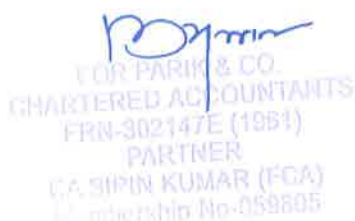 FOR PARIK & CO.
CHARTERED ACCOUNTANTS
FRN-302147E (1961)
PARTNER
CA SIPIN KUMAR (FCA)
Membership No-059805